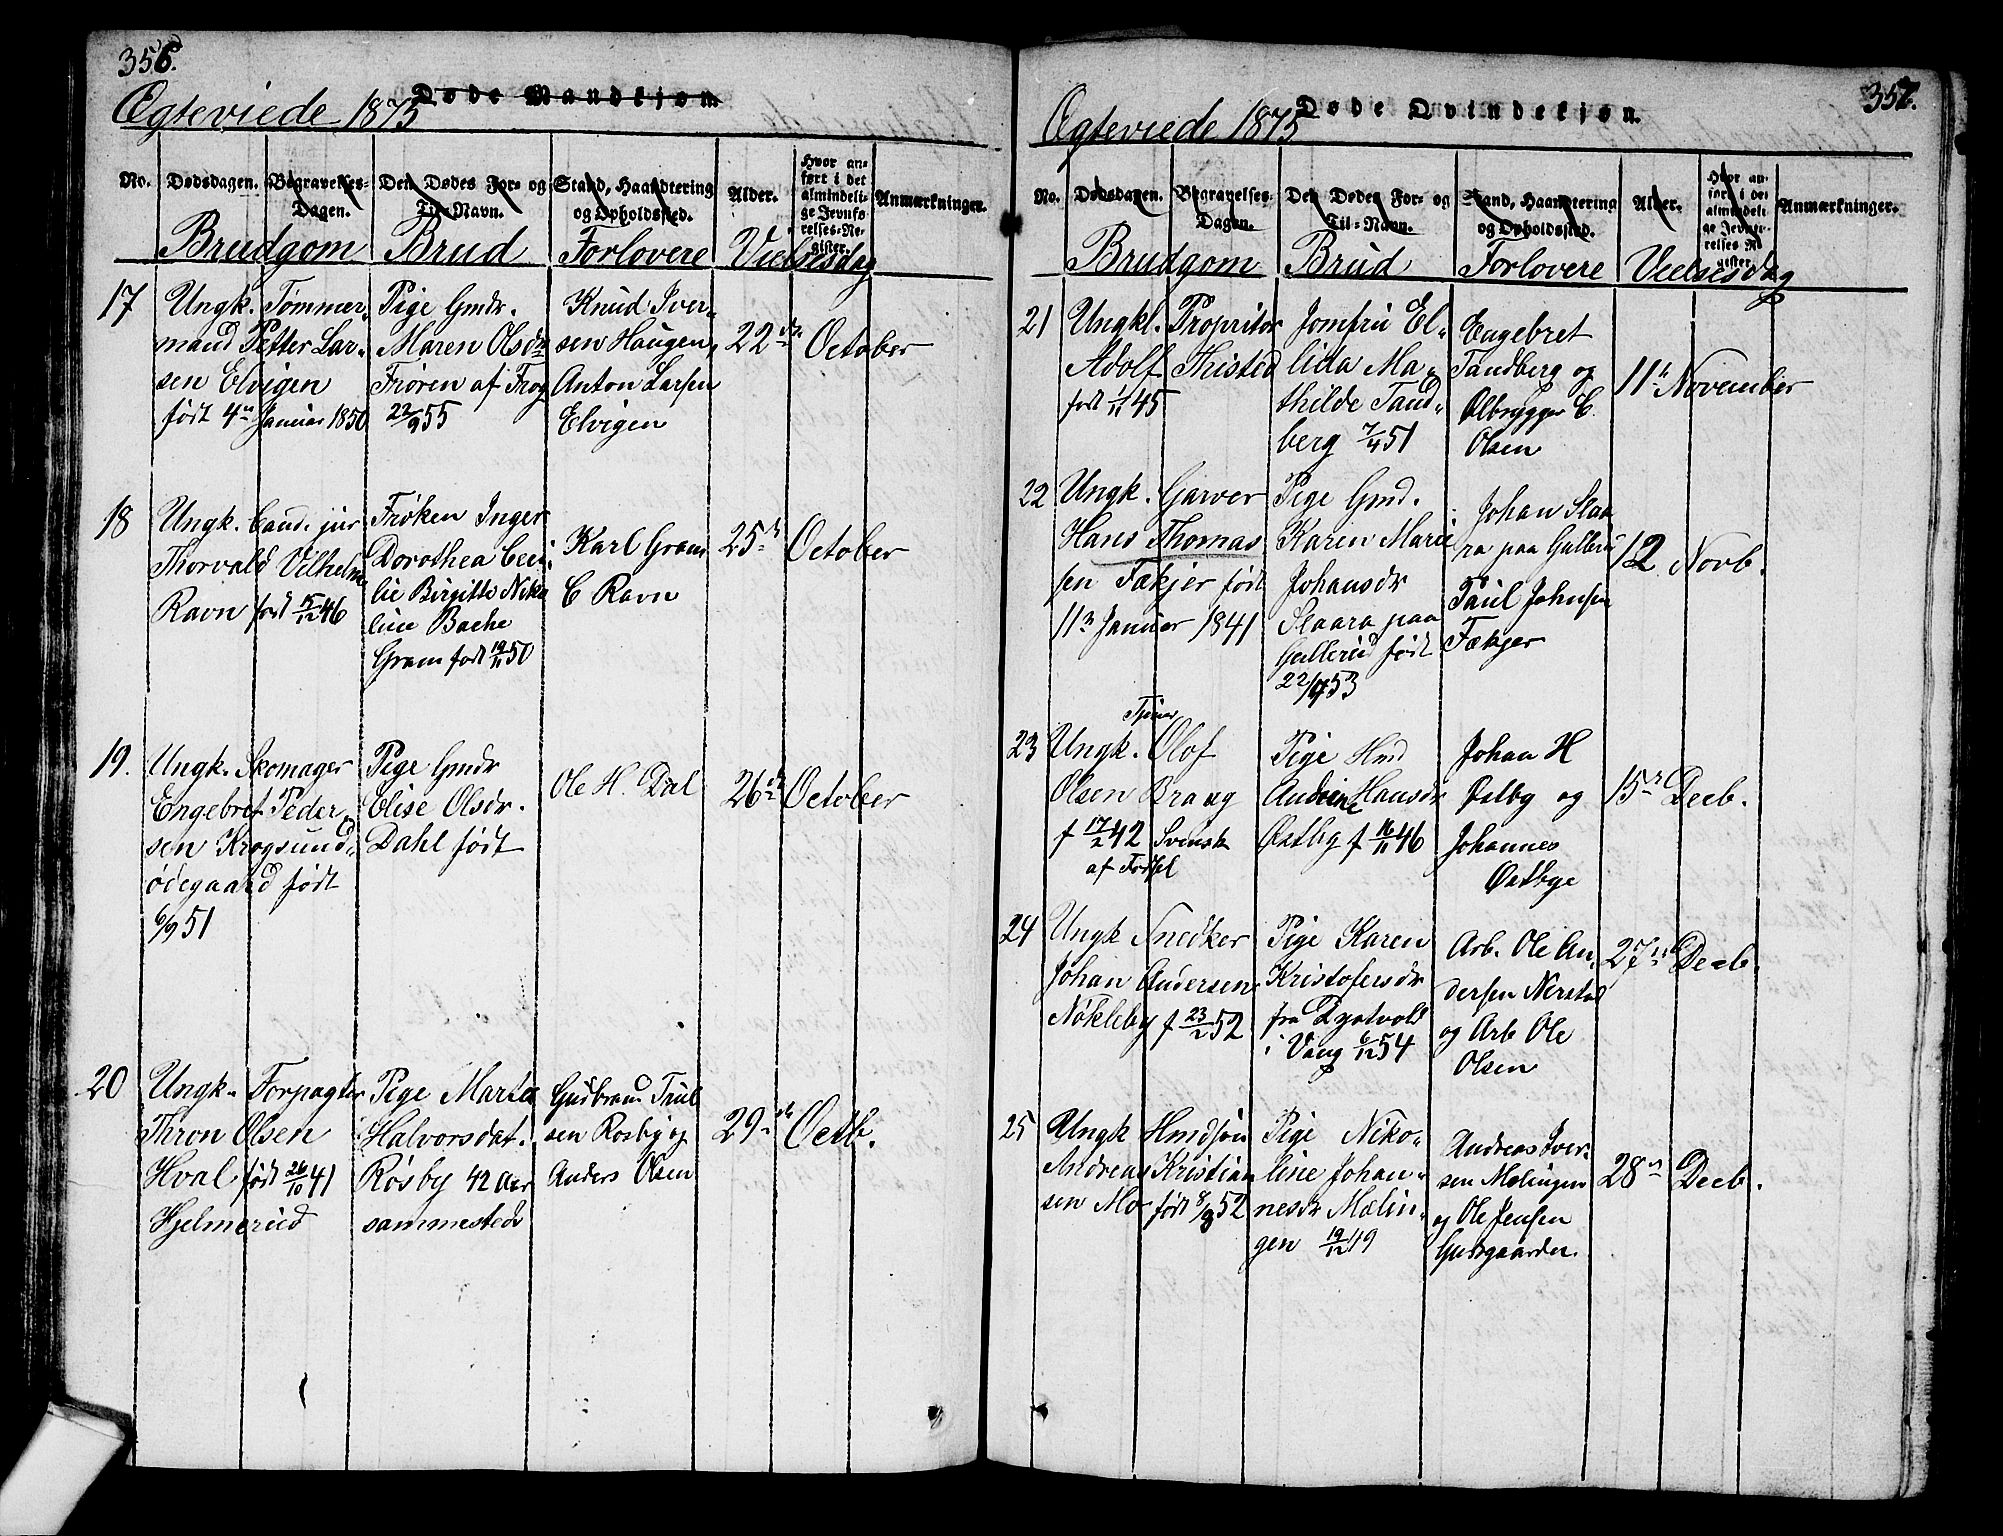 356.
Ægteviede 1875
Døde Mandkjøn.
No. Dødsdagen. Begravelses-Dagen. Den Dødes For- og Til-Navn. Stand, Haandtering og Opholdssted. Alder. Hvor anført i det almindelige Jevnførelses-Register. Anmærkninger.
Brudgom Brud Forlovere Vielsesdag
17 Ungk. Tømmer-
mand Petter Lar-
sen Elvigen
født 4de Januar 1850
Pige Gmdr.
Maren Olsdr
Frøren af Frog
22/9 55
Knud Iver-
sen Haugen,
Anton Larsen
Elvigen
22de October
18 Ungk. Cand. jur
Thorvald Vilhelm
Ravn født 15/12 46
Frøken Inger
Dorothea Ceci-
lie Birgitte Niko
line Bache
Gram født 19/11 50
Karl Gram
C Ravn
25de October
19. Ungk. Skomager
Engebret Peder-
sen Krogsund-
ødegaard født
6/9 51
Pige Gmdr
Elise Olsdr.
Dahl født
Ole H. Dal
26de October
20 Ungk. Forpagter
Thron Olsen
Hval født 26/10 41
Hjelmerud
Pige Marte
Halvorsdat.
Røsby 42 Aar
sammesteds
Gudbrand Paul
sen Rosby og
Anders Olsen
29de Octb.
357.
Ægteviede 1875
Døde Qvindekjøn.
No. Dødsdagen. Begravelses-Dagen. Den Dødes For- og Til-Navn. Stand, Haandtering og Opholdssted. Alder. Hvor anført i det almindelige Jevnførelses-Register. Anmærkninger.
Brudgom Brud Forlovere Vielsesdag
21 Ungkl. Propritær
Adolf Thisted
født 1/11 45
Jomfru El-
lida Ma-
thilde Tand-
berg 7/4 51
Engebret
Tandberg og
Ølbrygger C.
Olsen
11te November
22 Ungk. Garver
Hans Thomas
sen Fækjer født
11te Januar 1841
Pige Gmd.
Karen Marie
Johansdr
Slaara paa
Gullerud født
22/9 53
Johan Slaa
ra paa Gulleru
Paul Johnsen
Fækjer
12 Novb.
23 Ungk. Tjener Olof
Olsen Braag
f 17/2 42 Svensk
af Fødsel
Pige Hmd
Andrine Hansdr
Østby f 16/11 46
Johan H
Palby og
Johannes
Østbye
15de Decb.
24 Ungk Snedker
Johan Andersen
Nøkleby f 23/2 52
Pige Karen
Kristofersdr
fra Dystvold
i Vang 6/12 54
Arb. Ole An-
dersen Nerstad
og Arb Ole
Olsen
27de Decb.
25 Ungk Hmdsøn
Andreas Kristian
sen Mo født 8/9 52
Pige Niko-
line Johan-
nesdr Mælin-
gen 19/12 49
Andreas Iver-
sen Mælingen
og Ole Jensen
Gudsgaarden.
28de Decb.